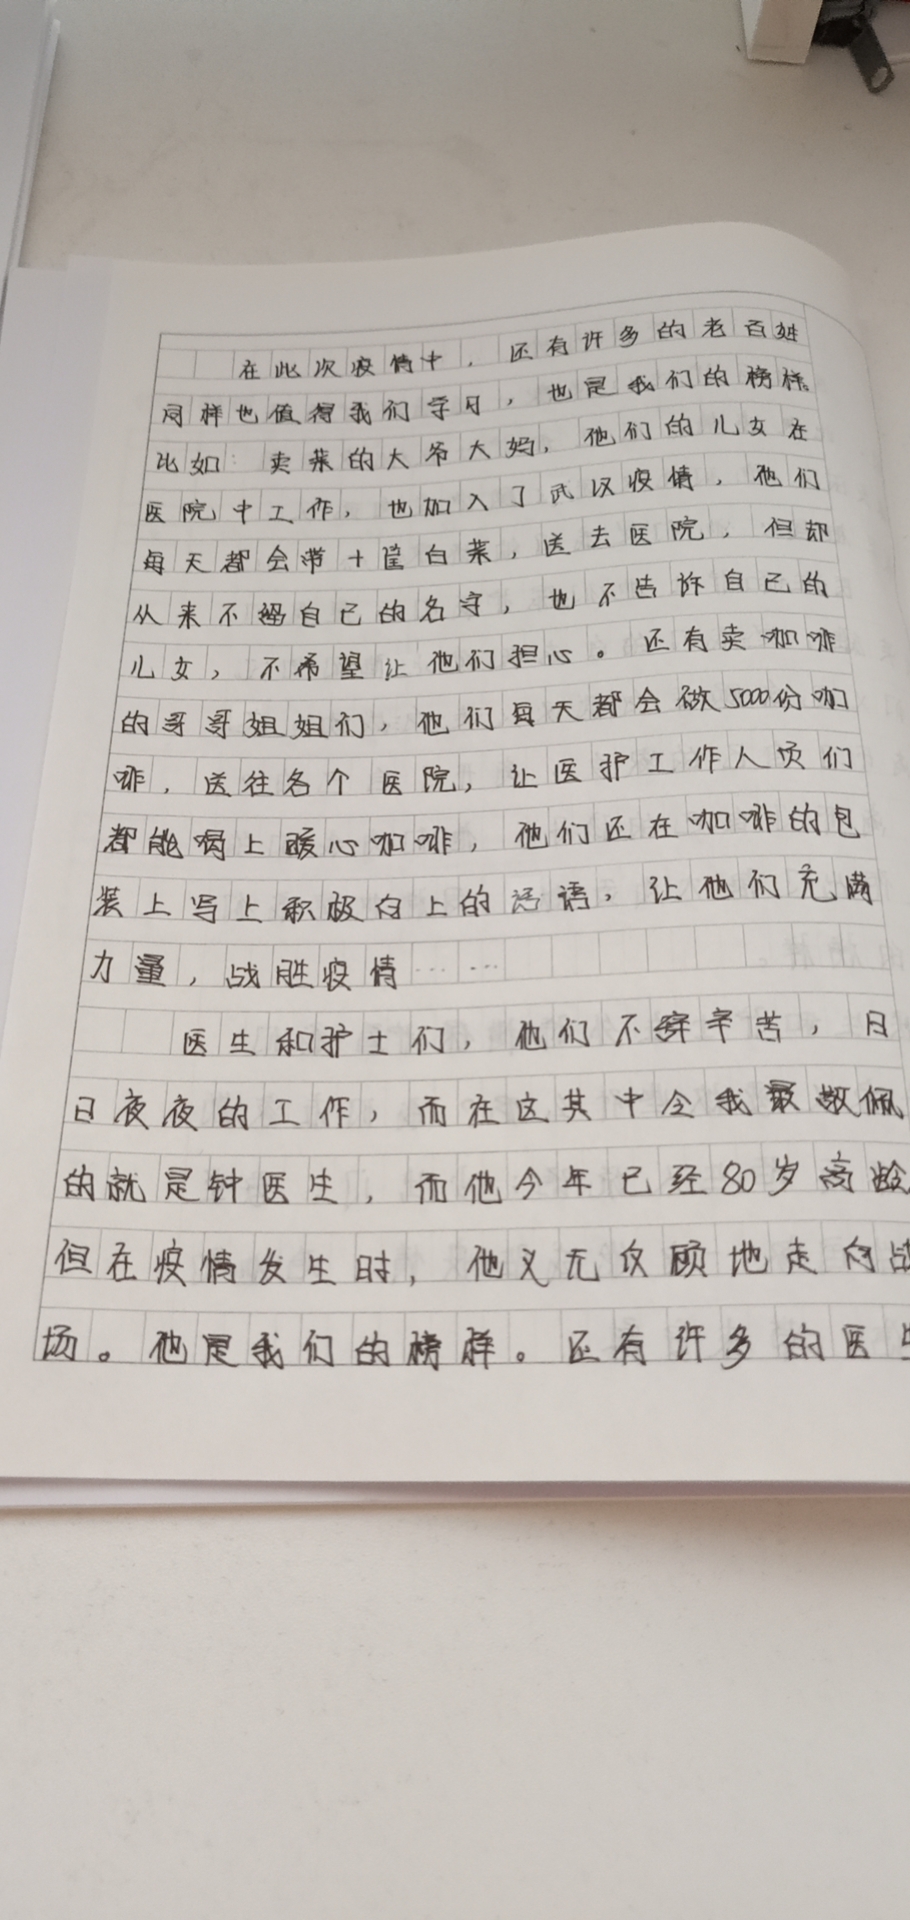 在此次疫情中，还有许多的老百姓
同样也值得我们学习，也是我们的榜样
比如：卖菜的大爷大妈，他们的儿女在
医院中工作，也加入了武汉疫情，他们
每天都会带十筐白菜，送去医院，但却
从来不留自己的名字，也不告诉自己的
儿女，不希望让他们担心。还有卖咖啡
的哥哥姐姐们，他们每天都会做5000份咖
啡，送往各个医院，让医护工作人员们
都能喝上暖心咖啡，他们还在咖啡的包
装上写上积极向上的话语，让他们充满
力量，战胜疫情……
医生和护士们，他们不辞辛苦，日
日夜夜的工作，而在这其中令我最敬佩
的就是钟医生，而他今年已经80岁高龄
但在疫情发生时，他义无反顾地走向战
场。他是我们的榜样。还有许多的医生